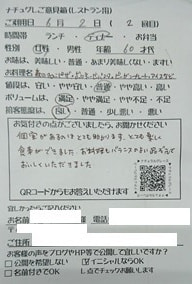 ナチュグレご意見箱(レストラン用)
ご利用日 6月 2日 ( 2 回目)
時間帯 ランチ・ディナー・お弁当
性別 男性・女性 年齢 60 才代
お味は 美味しい・普通・あまり美味しくない・まずい
お料理名
値段は、安い・やや安い・普通・やや高い・高い
ボリュームは、満足・やや満足・やや不足・不足
接客態度は、良い・普通・少し悪い・悪い
お気付きの点がございましたら、お聞かせください
個室があるのはとても助かります。とても楽しい
食事ができました。お料理もバランスの良い品ぞろえで
おいしくいただきました
QRコードからもお答えいただけます
宜しかったらご記入ください
お名前 電話
ご住所
お客様の声をブログやHP等で公開して宜しいですか?
□公開を希望しない ☑イニシャルならOK
□名前付きでOK レ点でチェックお願いします